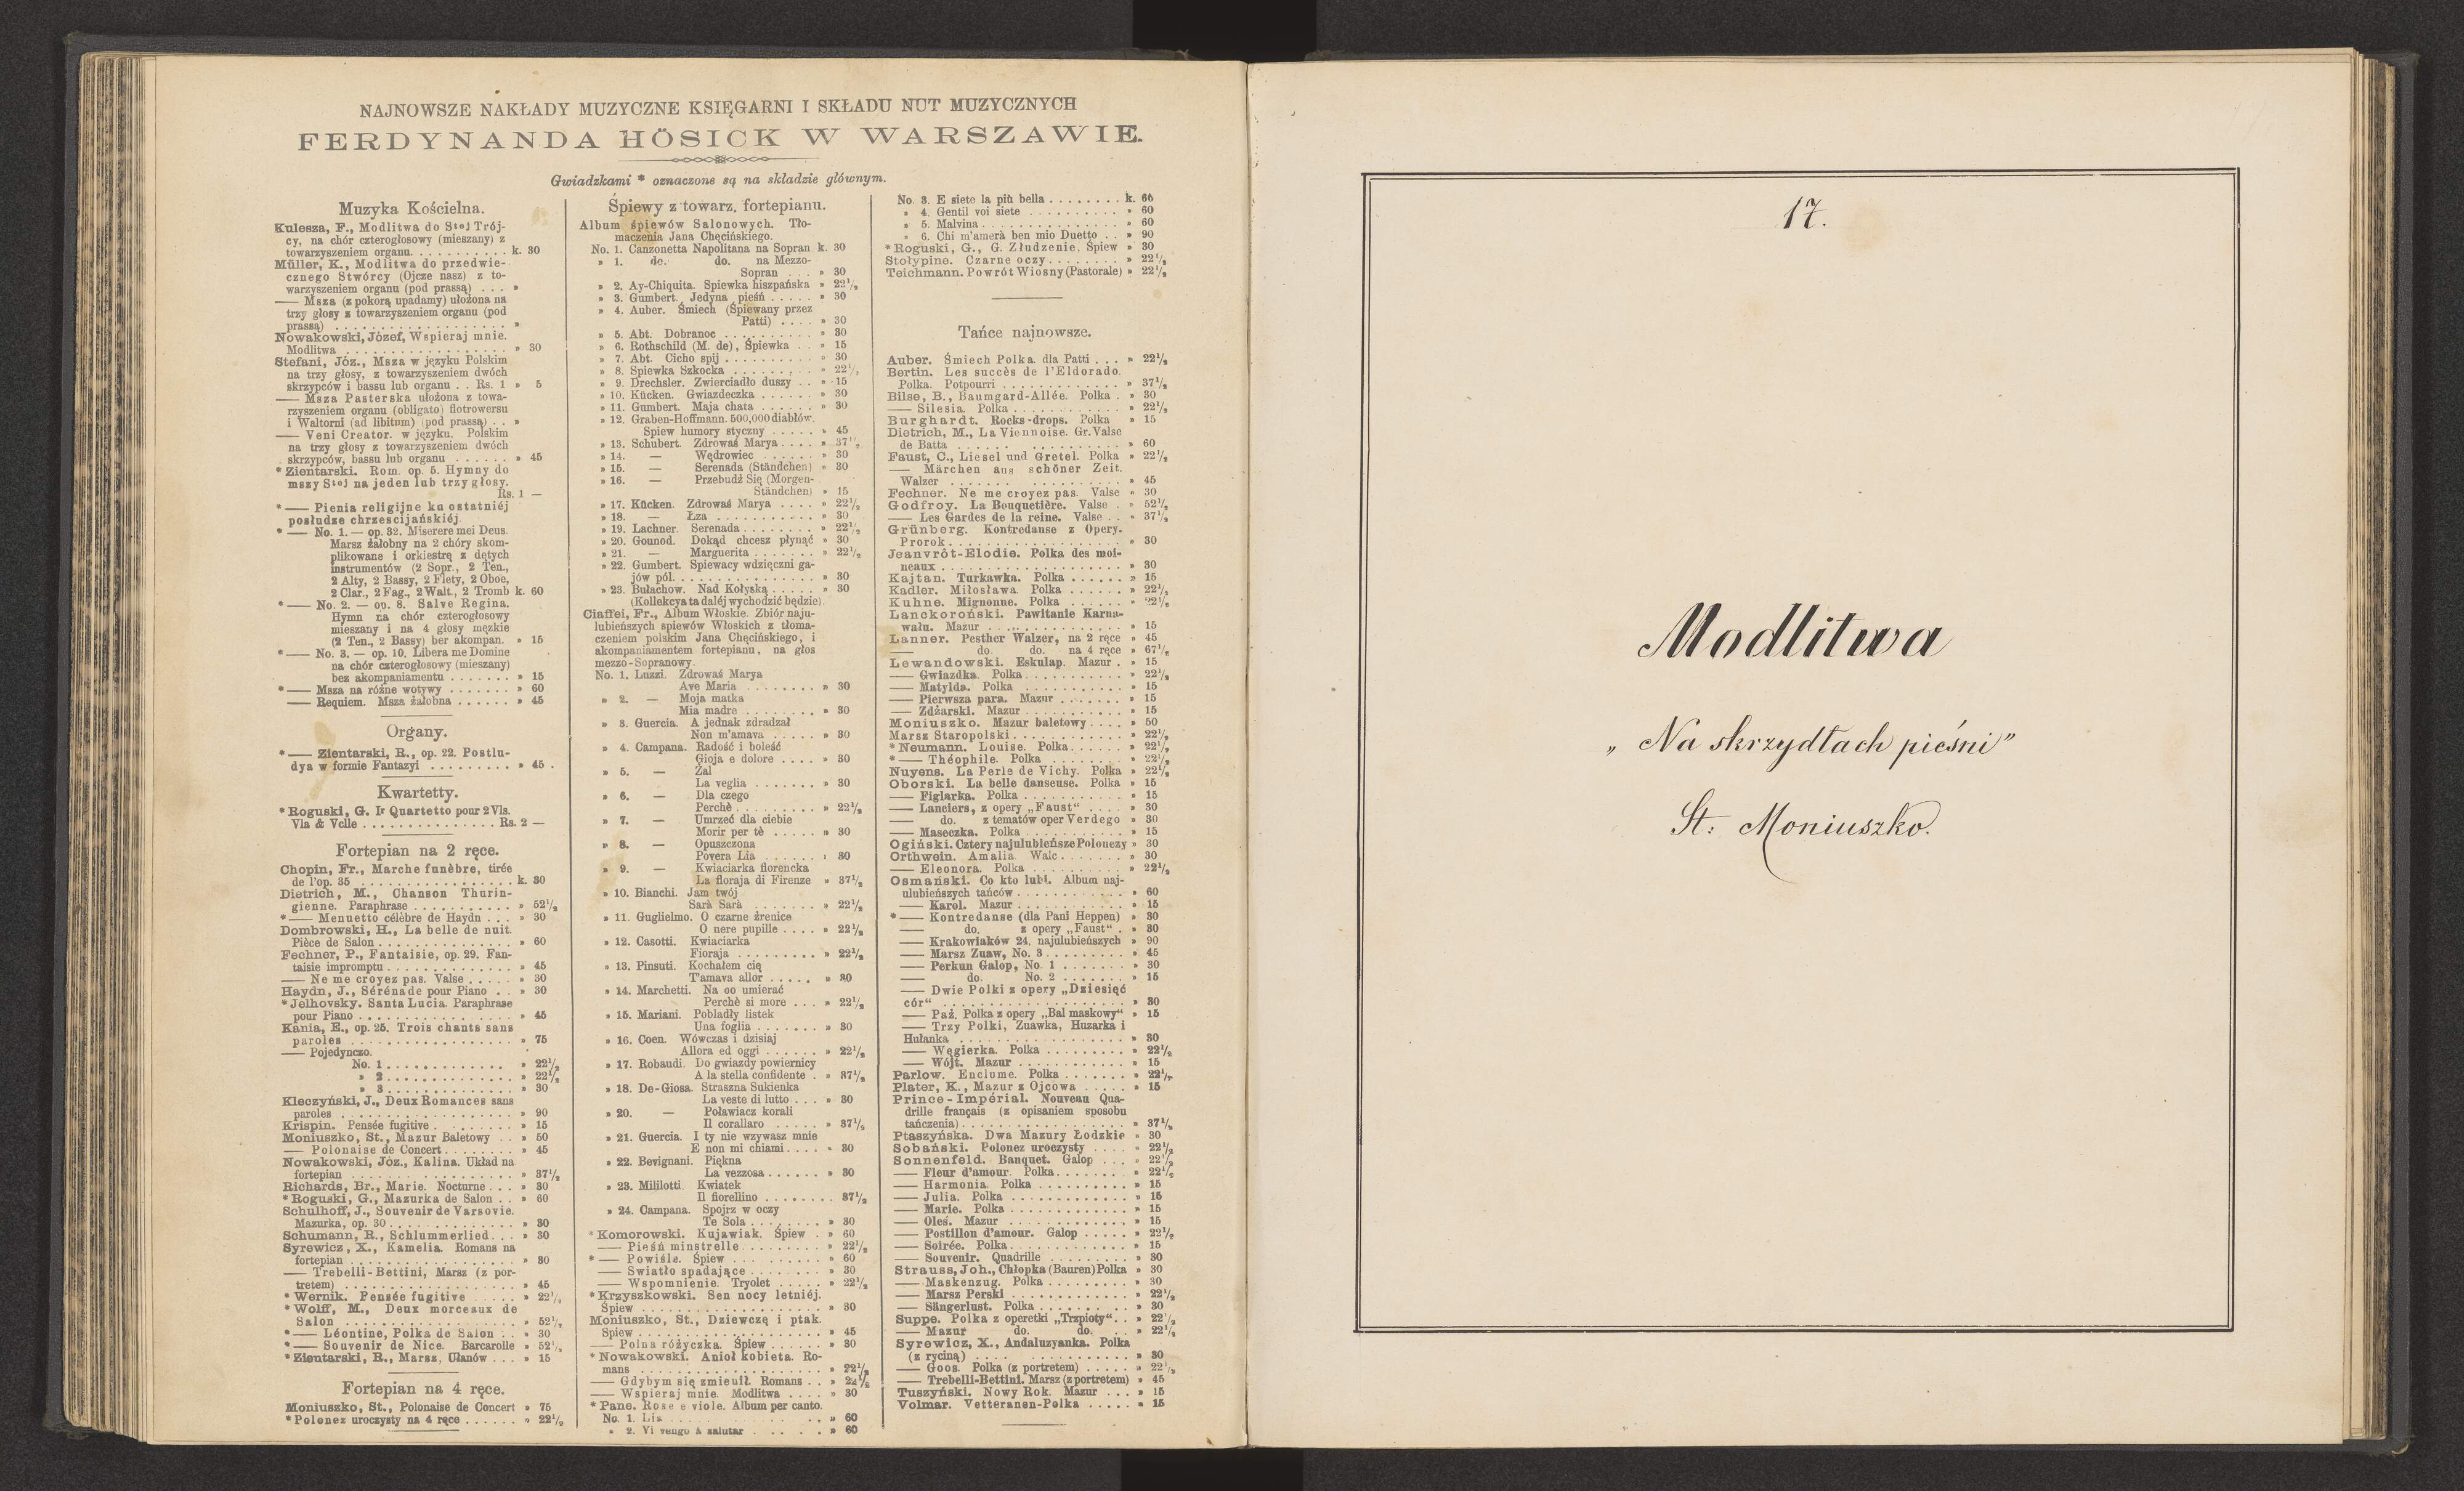 NAJNOWSZE NAKŁADY MUZYCZNE KSIĘGARNI I SKŁADU NUT MUZYCZNYCH
FERDYNANDA HÖSICK W WARSZAWIE.
Gwiadzkami * oznaczone są na składzie głównym.
Muzyka Kościelna.
Kulesza, F., Modlitwa do Stej Trój-
cy, na chór czterogłosowy (mieszany) z
towarzyszeniem organu. . . . . . . . . . . k. 30
Müller, K., Modlitwa do przedwie-
cznego Stwórcy (Ojcze nasz) z to-
warzyszeniem organu (pod prassą) . . . »
—— Msza (z pokorą upadamy) ułożona na
trzy głosy z towarzyszeniem organu (pod
prassą) . . . . . . . . . . »
Nowakowski, Józef, Wspieraj mnie.
Modlitwa . . . . . . . . . . » 30
Stefani, Józ., Msza w języku Polskim
na trzy głosy, z towarzyszeniem dwóch
skrzypców i bassu lub organu . . Rs. 1 » 5
—— Msza Pasterska ułożona z towa-
rzyszeniem organu (obligato) flotrowersu
i Waltorni (ad libitum) (pod prassą) . . »
—— Veni Creator. w języku. Polskim
na trzy głosy z towarzyszeniem dwóch
skrzypców, bassu lub organu . . . . . . » 45
* Zientarski. Rom. op. 5. Hymny do
mszy Stej na jeden lub trzy głosy.
Rs. 1 —
* —— Pienia religijne ku ostatniéj
posłudze chrzescijańskiéj.
* — No. 1. — op. 32. Miserere mei Deus.
Marsz żałobny na 2 chóry skom-
plikowane i orkiestrę z dętych
instrumentów (2 Sopr., 2 Ten.,
2 Alty, 2 Bassy, 2 Flety, 2 Oboe,
2 Clar., 2 Fag., 2 Walt., 2 Tromb k. 60
* — No. 2. — op. 8. Salve Regina.
Hymn na chór czterogłosowy
mieszany i na 4 głosy męzkie
(2 Ten., 2 Bassy) ber akompan. » 15
* — No. 3. — op. 10. Libera me Domine
na chór czterogłosowy (mieszany)
bez akompaniamentu . . . . . . . » 15
* —— Msza na różne wotywy . . . . . . . » 60
—— Requiem. Msza żałobna . . . . . . » 45
Organy.
* —— Zientarski, R., op. 22. Postlu-
dya w formie Fantazyi . . . . . . . . . » 45 .
Kwartetty.
* Roguski, G. Ir Quartetto pour 2 Vls.
Vla & Vclle . . . . . . . . . . . . . . . Rs. 2 —
Fortepian na 2 ręce.
Chopin, Fr., Marche funèbre, tirée
de l'op. 35 . . . . . . . . . . k. 30
Dietrich, M., Chanson Thurin-
gienne. Paraphrase . . . . . . . . . . . » 52½
* —— Menuetto célèbre de Haydn . . . » 30
Dombrowski, H., La belle de nuit.
Pièce de Salon . . . . . . . . . . » 60
Fechner, P., Fantaisie, op. 29. Fan-
taisie impromptu . . . . . . . . . . » 45
—— Ne me croyez pas. Valse . . . . . » 30
Haydn, J., Sérénade pour Piano . . » 30
* Jelhovsky. Santa Lucia. Paraphrase
pour Piano . . . . . . . . . . » 45
Kania, E., op. 25. Trois chants sans
paroles . . . . . . . . . . » 75
—— Pojedynczo.
No. 1 . . . . . . . . . . » 22½
» 2 . . . . . . . . . . » 22½
» 3 . . . . . . . . . . » 30
Kleczyński, J., Deux Romances sans
paroles . . . . . . . . . . » 90
Krispin. Pensée fugitive . . . . . . . . » 15
Moniuszko, St., Mazur Baletowy . . » 50
—— Polonaise de Concert . . . . . . . . » 45
Nowakowski, Józ., Kalina. Układ na
fortepian . . . . . . . . . . » 37½
Richards, Br., Marie. Nocturne . . . » 30
* Roguski, G., Mazurka de Salon . . » 60
Schulhoff, J., Souvenir de Varsovie.
Mazurka, op. 30 . . . . . . . . . . » 30
Schumann, R., Schlummerlied. . . » 30
Syrewicz, X., Kamelia. Romans na
fortepian . . . . . . . . . . » 30
—— Trebelli-Bettini, Marsz (z por-
tretem) . . . . . . . . . . » 45
* Wernik. Pensée fugitive . . . . . » 22½
* Wolff, M., Deux morceaux de
Salon . . . . . . . . . . » 52½
* —— Léontine, Polka de Salon . . » 30
* —— Souvenir de Nice. Barcarolle » 52½
* Zientarski, R., Marsz, Ułanów . . . » 15
Fortepian na 4 ręce.
Moniuszko, St., Polonaise de Concert » 75
* Polonez uroczysty na 4 ręce . . . . . . » 22½
Śpiewy z towarz. fortepianu.
Album śpiewów Salonowych. Tło-
maczenia Jana Chęcińskiego.
No. 1. Canzonetta Napolitana na Sopran k. 30
» 1. do. do. na Mezzo-
Sopran . . . » 30
» 2. Ay-Chiquita. Spiewka hiszpańska » 22½
» 3. Gumbert. Jedyna pieśń . . . . . » 30
» 4. Auber. Śmiech (Śpiewany przez
Patti) . . . . » 30
» 5. Abt. Dobranoc . . . . . . . . . . » 30
» 6. Rothschild (M. de), Śpiewka . . » 15
» 7. Abt. Cicho spij . . . . . . . . . . » 30
» 8. Spiewka Szkocka . . . . . . . . . » 22½
» 9. Drechsler. Zwierciadło duszy . . » 15
» 10. Kücken. Gwiazdeczka . . . . . . » 30
» 11. Gumbert. Maja chata . . . . . . » 30
» 12. Graben-Hoffmann. 500,000 diabłów.
Spiew humory styczny . . . . . » 45
» 13. Schubert. Zdrowaś Marya . . . . » 37½
» 14. — Wędrowiec . . . . . . » 30
» 15. — Serenada (Ständchen) » 30
» 16. — Przebudź Się (Morgen-
Ständchen) » 15
» 17. Kücken. Zdrowaś Marya . . . . » 22½
» 18. — Łza . . . . . . . . . . » 30
» 19. Lachner. Serenada . . . . . . . . » 22½
» 20. Gounod. Dokąd chcesz płynąć » 30
» 21. — Marguerita . . . . . . . » 22½
» 22. Gumbert. Spiewacy wdzięczni ga-
jów pól. . . . . . . . . . . » 30
» 23. Bułachow. Nad Kołyską . . . . . » 30
(Kollekcya ta daléj wychodzić będzie)
Ciaffei, Fr., Album Włoskie. Zbiór naju-
lubieńszych spiewów Włoskich z tłoma-
czeniem polskim Jana Chęcińskiego, i
akompaniamentem fortepianu, na głos
mezzo-Sopranowy.
No. 1. Luzzi. Zdrowaś Marya
Ave Maria . . . . . . . . » 30
» 2. — Moja matka
Mia madre . . . . . . . . » 30
» 3. Guercia. A jednak zdradzał
Non m'amava . . . . . » 30
» 4. Campana. Radość i boleść
Gioja e dolore . . . . » 30
» 5. — Żal
La veglia . . . . . . . » 30
» 6. — Dla czego
Perchè . . . . . . . . . » 22½
» 7. — Umrzeć dla ciebie
Morir per tè . . . . . » 30
» 8. — Opuszczona
Povera Lia . . . . . . » 30
» 9. — Kwiaciarka florencka
La floraja di Firenze » 37½
» 10. Bianchi. Jam twój
Sarà Sarà . . . . . . . » 22½
» 11. Guglielmo. O czarne źrenice
O nere pupille . . . . » 22½
» 12. Casotti. Kwiaciarka
Fioraja . . . . . . . . . » 22½
» 13. Pinsuti. Kochałem cię
T'amava allor . . . . » 30
» 14. Marchetti. Na co umierać
Perchè si more . . . » 22½
» 15. Mariani. Pobladły listek
Una foglia . . . . . . . » 30
» 16. Coen. Wówczas i dzisiaj
Allora ed oggi . . . . . . » 22½
» 17. Robaudi. Do gwiazdy powiernicy
A la stella confidente . » 37½
» 18. De-Giosa. Straszna Sukienka
La veste di lutto . . . » 30
» 20. — Poławiacz korali
Il corallaro . . . . . » 37½
» 21. Guercia. I ty nie wzywasz mnie
E non mi chiami . . . . » 30
» 22. Bevignani. Piękna
La vezzosa . . . . . . . » 30
» 23. Mililotti. Kwiatek
Il fiorellino . . . . . . . . 37½
» 24. Campana. Spojrz w oczy
Te Sola . . . . . . . . » 30
* Komorowski. Kujawiak. Śpiew . » 60
—— Pieśń minstrelle . . . . . . . . . » 22½
* —— Powiśle. Śpiew . . . . . . . . . . » 60
—— Swiatło spadające . . . . . . . . » 30
—— Wspomnienie. Tryolet . . . . . » 22½
* Krzyszkowski. Sen nocy letniéj.
Śpiew . . . . . . . . . . » 30
Moniuszko, St., Dziewczę i ptak.
Spiew . . . . . . . . . . » 45
—— Polna różyczka. Śpiew . . . . . . » 30
* Nowakowski. Anioł kobieta. Ro-
mans . . . . . . . . . . » 22½
—— Gdybym się zmienił. Romans . . » 22½
—— Wspieraj mnie. Modlitwa . . . . » 30
* Pane. Rose e viole. Album per canto.
No. 1. Lia . . . . . . . . . . » 60
» 2. Vi vengo à salutar . . . . . » 60
No. 3. E siete la più bella . . . . . . . . k. 60
» 4. Gentil voi siete . . . . . . . . . . » 60
» 5. Malvina . . . . . . . . . . » 60
» 6. Chi m'amerà ben mio Duetto . . » 90
* Roguski, G., G. Złudzenie. Śpiew » 30
Stołypine. Czarne oczy . . . . . . . . » 22½
Teichmann. Powrót Wiosny (Pastorale) » 22½
Tańce najnowsze.
Auber. Śmiech Polka. dla Patti . . . » 22½
Bertin. Les succès de l'Eldorado.
Polka. Potpourri . . . . . . . . . . » 37½
Bilse, B., Baumgard-Allée. Polka . » 30
—— Silesia. Polka . . . . . . . . . . » 22½
Burghardt. Rocks-drops. Polka » 15
Dietrich, M., La Viennoise. Gr. Valse
de Batta . . . . . . . . . . » 60
Faust, C., Liesel und Gretel. Polka » 22½
—— Märchen aus schöner Zeit.
Walzer . . . . . . . . . . » 45
Fechner. Ne me croyez pas. Valse » 30
Godfroy. La Bouquetière. Valse . » 52½
—— Les Gardes de la reine. Valse . . » 37½
Grünberg. Kontredanse z Opery.
Prorok . . . . . . . . . . » 30
Jeanvrôt-Elodie. Polka des moi-
neaux . . . . . . . . . . » 30
Kajtan. Turkawka. Polka . . . . . . » 15
Kadler. Miłosława. Polka . . . . . . » 22½
Kuhne. Mignonne. Polka . . . . . . » 22½
Lanckoroński. Pawitanie Karna-
wału. Mazur . . . . . . . . . . » 15
Lanner. Pesther Walzer, na 2 ręce » 45
—— do. do. na 4 ręce » 67½
Lewandowski. Eskulap. Mazur . » 15
—— Gwiazdka. Polka . . . . . . . . . . » 22½
—— Matylda. Polka . . . . . . . . . . » 15
—— Pierwsza para. Mazur . . . . . . . » 15
—— Zdżarski. Mazur . . . . . . . . . . » 15
Moniuszko. Mazur baletowy . . . . » 50
Marsz Staropolski . . . . . . . . . . » 22½
* Neumann. Louise. Polka . . . . . . » 22½
* —— Théophile. Polka . . . . . . . . » 22½
Nuyens. La Perle de Vichy. Polka » 22½
Oborski. La belle danseuse. Polka » 15
—— Figlarka. Polka . . . . . . . . . . » 15
—— Lanciers, z opery „Faust“ . . . . » 30
—— do. z tematów oper Verdego » 30
—— Maseczka. Polka . . . . . . . . . . » 15
Ogiński. Cztery najulubieńsze Polonezy » 30
Orthwein. Amalia. Walc . . . . . . . » 30
—— Eleonora. Polka . . . . . . . . . . » 22½
Osmański. Co kto lubi. Album naj-
ulubieńszych tańców . . . . . . . . . . » 60
—— Karol. Mazur . . . . . . . . . . » 15
* —— Kontredanse (dla Pani Heppen) » 30
—— do. z opery „Faust“ . » 30
—— Krakowiaków 24, najulubieńszych » 90
—— Marsz Zuaw, No. 3 . . . . . . . . . » 45
—— Perkun Galop, No. 1 . . . . . . . » 30
—— do. No. 2 . . . . . . . » 15
—— Dwie Polki z opery „Dziesięć
cór“ . . . . . . . . . . » 30
—— Paź. Polka z opery „Bal maskowy“ » 15
—— Trzy Polki, Zuawka, Huzarka i
Hułanka . . . . . . . . . . » 30
—— Węgierka. Polka . . . . . . . . . » 22½
—— Wójt. Mazur . . . . . . . . . . » 15
Parlow. Enclume. Polka . . . . . . . » 22½
Plater, K., Mazur z Ojcowa . . . . . » 15
Prince-Impérial. Nouveau Qua-
drille français (z opisaniem sposobu
tańczenia) . . . . . . . . . . » 37½
Ptaszyńska. Dwa Mazury Łodzkie » 30
Sobański. Polonez uroczysty . . . . » 22½
Sonnenfeld. Banquet. Galop . . . » 22½
—— Fleur d'amour. Polka . . . . . . . . » 22½
—— Harmonia. Polka . . . . . . . . . . » 15
—— Julia. Polka . . . . . . . . . . » 15
—— Marie. Polka . . . . . . . . . . » 15
—— Oleś. Mazur . . . . . . . . . . » 15
—— Postillon d'amour. Galop . . . . . » 22½
—— Soirée. Polka . . . . . . . . . . » 15
—— Souvenir. Quadrille . . . . . . . . . » 30
Strauss, Joh., Chłopka (Bauren) Polka » 30
—— Maskenzug. Polka . . . . . . . . . » 30
—— Marsz Perski . . . . . . . . . . » 22½
—— Sängerlust. Polka . . . . . . . . . » 30
Suppe. Polka z operetki „Trzpioty“ . . » 22½
—— Mazur do. do. . . » 22½
Syrewicz, X., Andaluzyanka. Polka
(z ryciną) . . . . . . . . . . » 30
—— Goos. Polka (z portretem) . . . . . » 22½
—— Trebelli-Bettini. Marsz (z portretem) » 45
Tuszyński. Nowy Rok. Mazur . . . » 15
Volmar. Vetteranen-Polka . . . . . » 15
17.
Modlitwa
„Na skrzydłach pieśni”
St: Moniuszko.